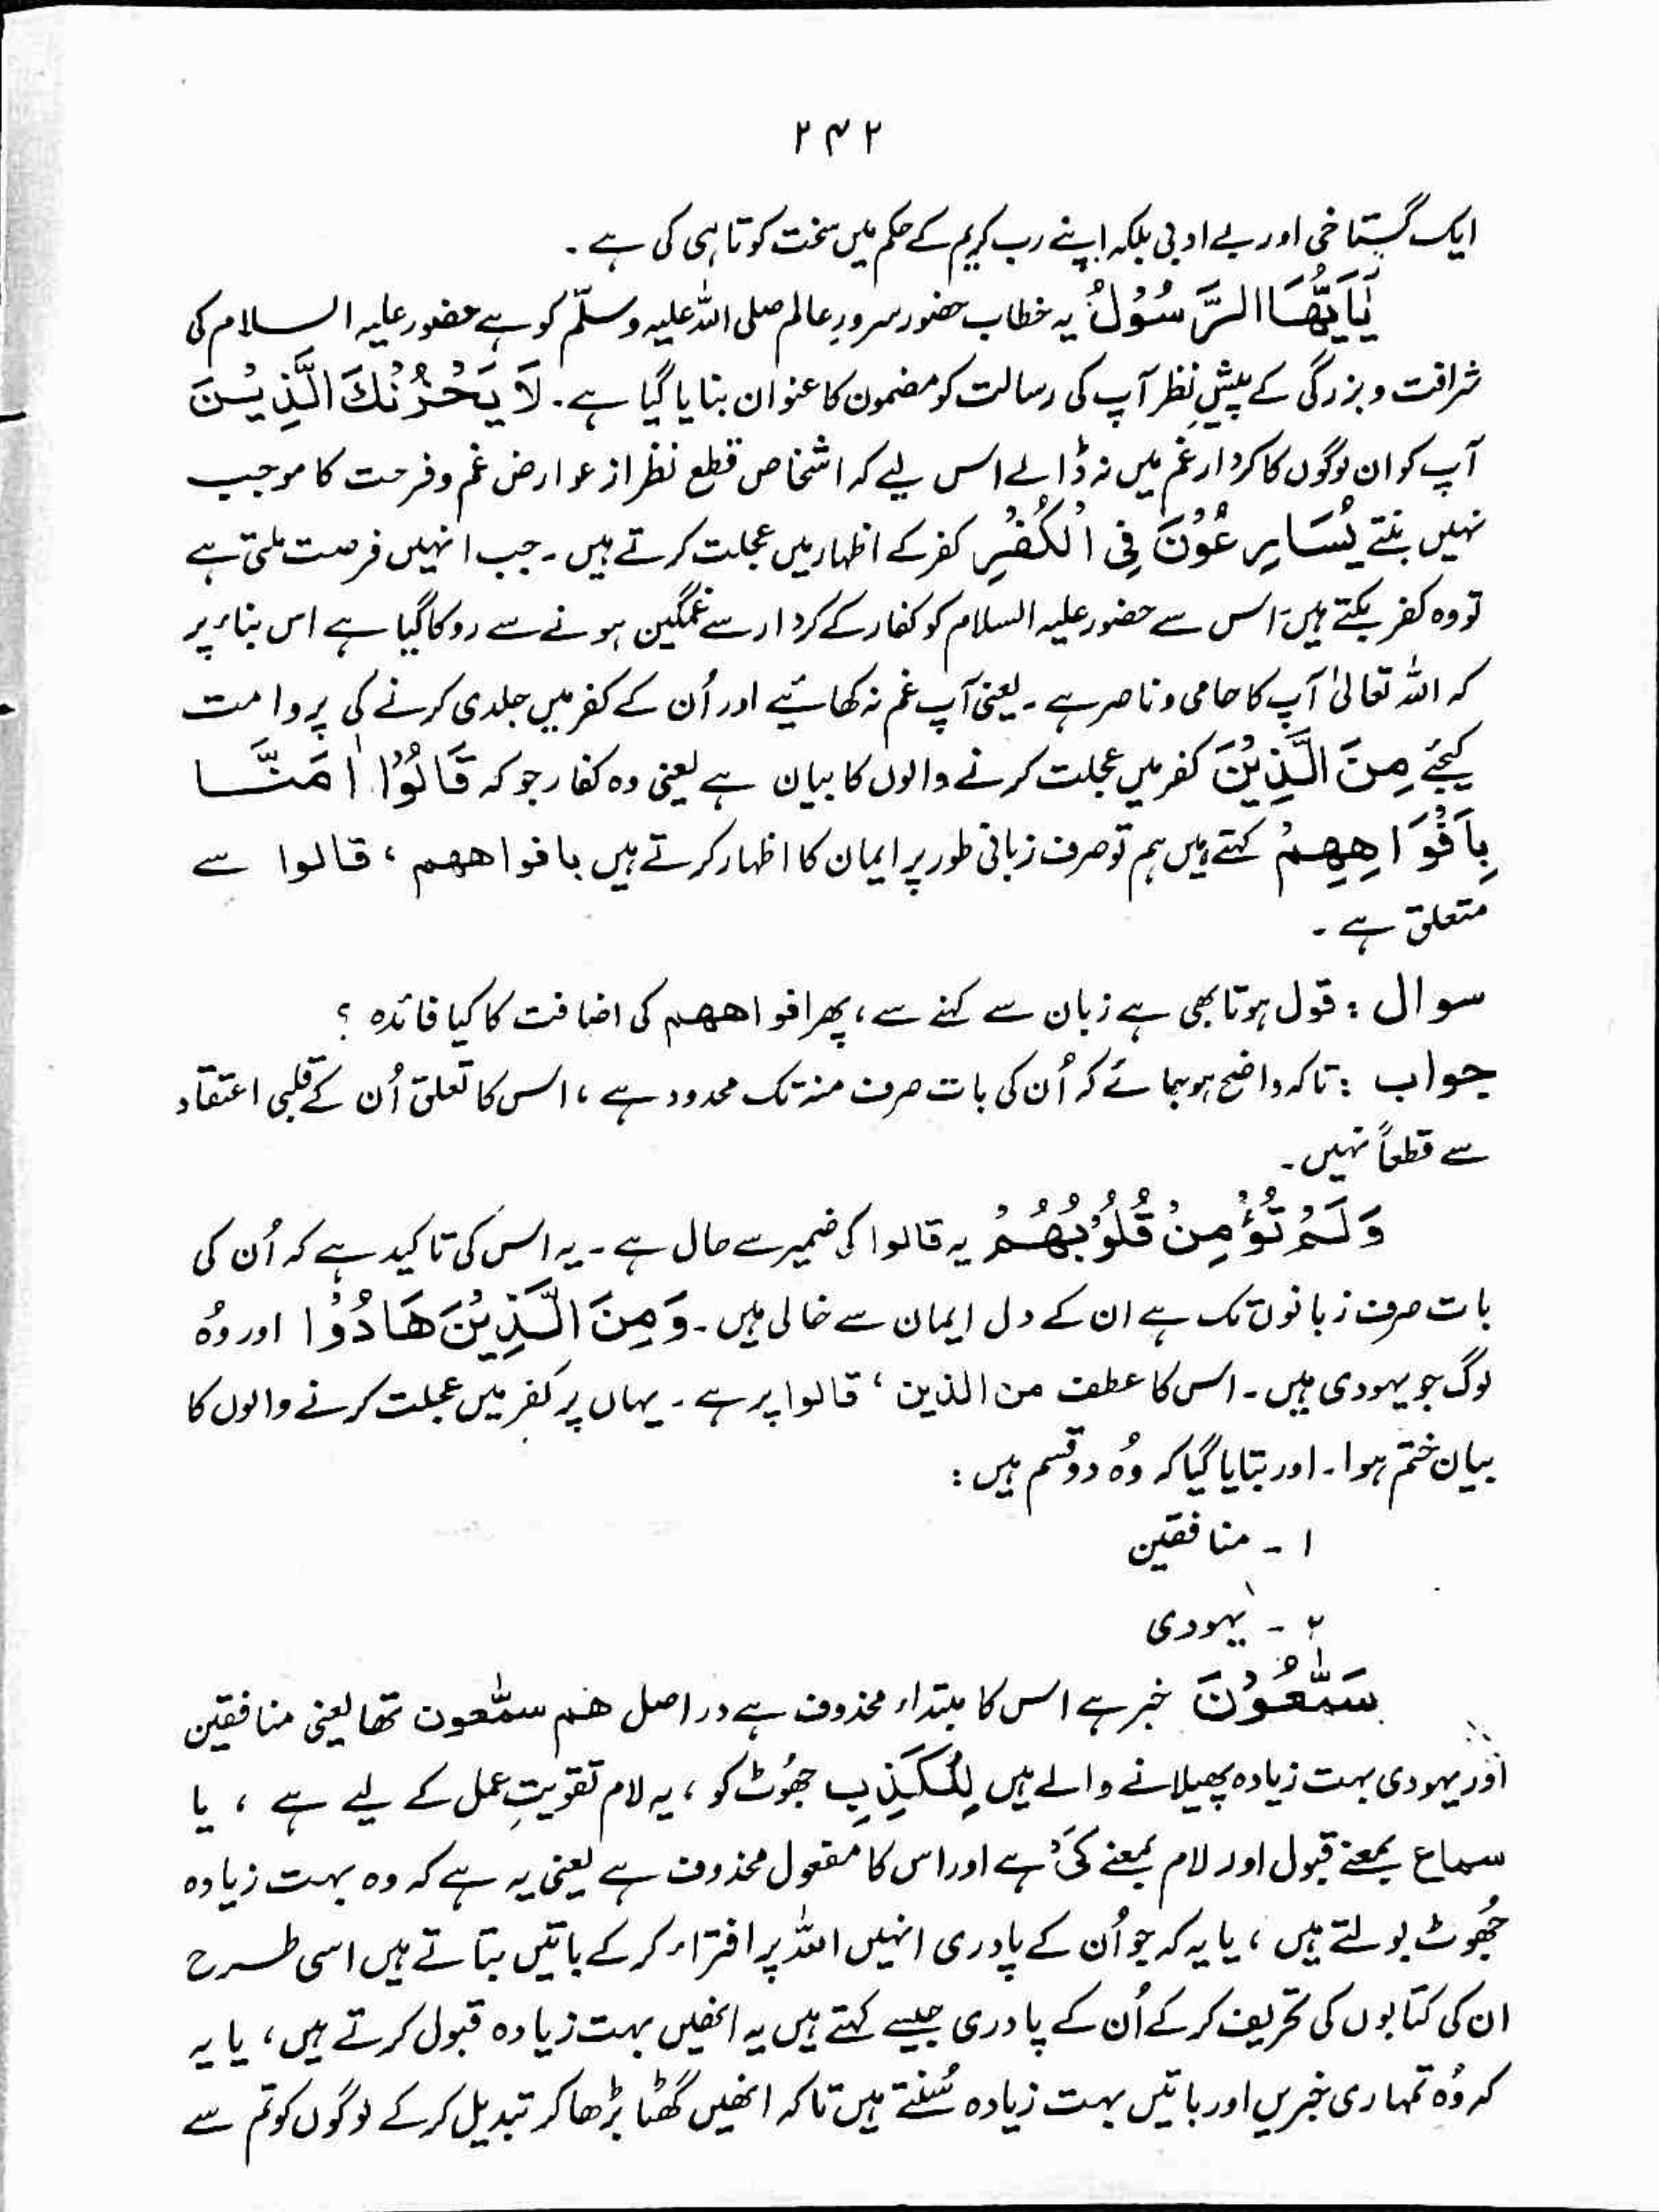 ۲۴۲
ایک گستاخی اور بے ادبی بلکہ اپنے رب کریم کے حکم میں سخت کوتاہی کی ہے ۔
يٰٓاَيُّهَا الرَّسُوْلُ یہ خطاب حضور سرورِ عالم صلی اللہ علیہ وسلّم کو ہے حضور علیہ السلام کی
شرافت و بزرگی کے پیشِ نظر آپ کی رسالت کو مضمون کا عنوان بنایا گیا ہے۔ لَا يَحْزُنْكَ الَّذِيْنَ
آپ کو ان لوگوں کا کردار غم میں نہ ڈالے اس لیے کہ اشخاص قطع نظر از عوارض غم و فرحت کا موجب
نہیں بنتے يُسَارِعُوْنَ فِى الْكُفْرِ کفر کے اظہار میں عجلت کرتے ہیں ۔ جب انہیں فرصت ملتی ہے
تو وہ کفر بکتے ہیں اس سے حضور علیہ السلام کو کفار کے کردار سے غمگین ہونے سے روکا گیا ہے اس بناء پر
کہ اللہ تعالیٰ آپ کا حامی و ناصر ہے ۔ یعنی آپ غم نہ کھائیے اور اُن کے کفر میں جلدی کرنے کی پروا مت
کیجئے مِنَ الَّذِيْنَ کفر میں عجلت کرنے والوں کا بیان ہے یعنی وہ کفار جو کہ قَالُوْٓا اٰمَنَّا
بِاَفْوَاهِهِمْ کہتے ہیں ہم تو صرف زبانی طور پر ایمان کا اظہار کرتے ہیں بافواههم ، قالوا سے
متعلق ہے ۔
سوال : قول ہوتا بھی ہے زبان سے کہنے سے ، پھر افواههم کی اضافت کا کیا فائدہ ؟
جواب : تاکہ واضح ہو جائے کہ اُن کی بات صرف منہ تک محدود ہے ، اس کا تعلق اُن کے قلبی اعتقاد
سے قطعاً نہیں ۔
وَلَمْ تُؤْمِنْ قُلُوْبُهُمْ یہ قالوا کی ضمیر سے حال ہے ۔ یہ اس کی تاکید ہے کہ اُن کی
بات صرف زبانوں تک ہے ان کے دل ایمان سے خالی ہیں ۔ وَمِنَ الَّذِيْنَ هَادُوْا اور وہ
لوگ جو یہودی ہیں ۔ اس کا عطف من الذین ، قالوا پر ہے ۔ یہاں پر کفر میں عجلت کرنے والوں کا
بیان ختم ہوا ۔ اور بتایا گیا کہ وہ دو قسم ہیں :
۱ ۔ منافقین
۲ ۔ یہودی
سَمّٰعُوْنَ خبر ہے اس کا مبتداء محذوف ہے دراصل هم سمّٰعون تھا یعنی منافقین
اور یہودی بہت زیادہ پھیلانے والے ہیں لِلْكَذِبِ جھوُٹ کو ، یہ لام تقویتِ عمل کے لیے ہے ، یا
سماع بمعنے قبول اور لام بمعنے کَیْ ہے اور اس کا مفعول محذوف ہے یعنی یہ ہے کہ وہ بہت زیادہ
جھُوٹ بولتے ہیں ، یا یہ کہ جو اُن کے پادری انہیں اللہ پر افتراء کر کے باتیں بتاتے ہیں اسی طرح
ان کی کتابوں کی تحریف کر کے اُن کے پادری جیسے کہتے ہیں یہ انھیں بہت زیادہ قبول کرتے ہیں ، یا یہ
کہ وُہ تمہاری خبریں اور باتیں بہت زیادہ سُنتے ہیں تاکہ انھیں گھٹا بڑھا کر تبدیل کر کے لوگوں کو تم سے